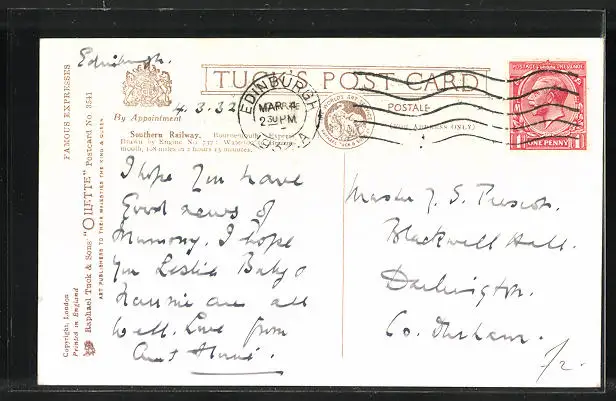 Edinburgh.
TUCK'S POST CARD
By Appointment
4.3.32
EDINBURGH
MAR 4
2 30 PM
POSTALE
(FOR ADDRESS ONLY)
POSTAGE REVENUE
ONE PENNY
1 1
Southern Railway. Bournemouth Express
Drawn by Engine No. 737: Waterloo
mouth, 108 miles in 2 hours 15 minutes.
I hope you have
Good news of
Mummy. I hope
you Leslie Baby &
are all
well. Love from
Aunt
Master J. S. Prescott.
Blackwell Hall.
Darlington.
Co. Durham.
/2.
FAMOUS EXPRESSES
Raphael Tuck & Sons' "OILETTE" Postcard No. 3541
ART PUBLISHERS TO THEIR MAJESTIES THE KING & QUEEN
Copyright, London
Printed in England